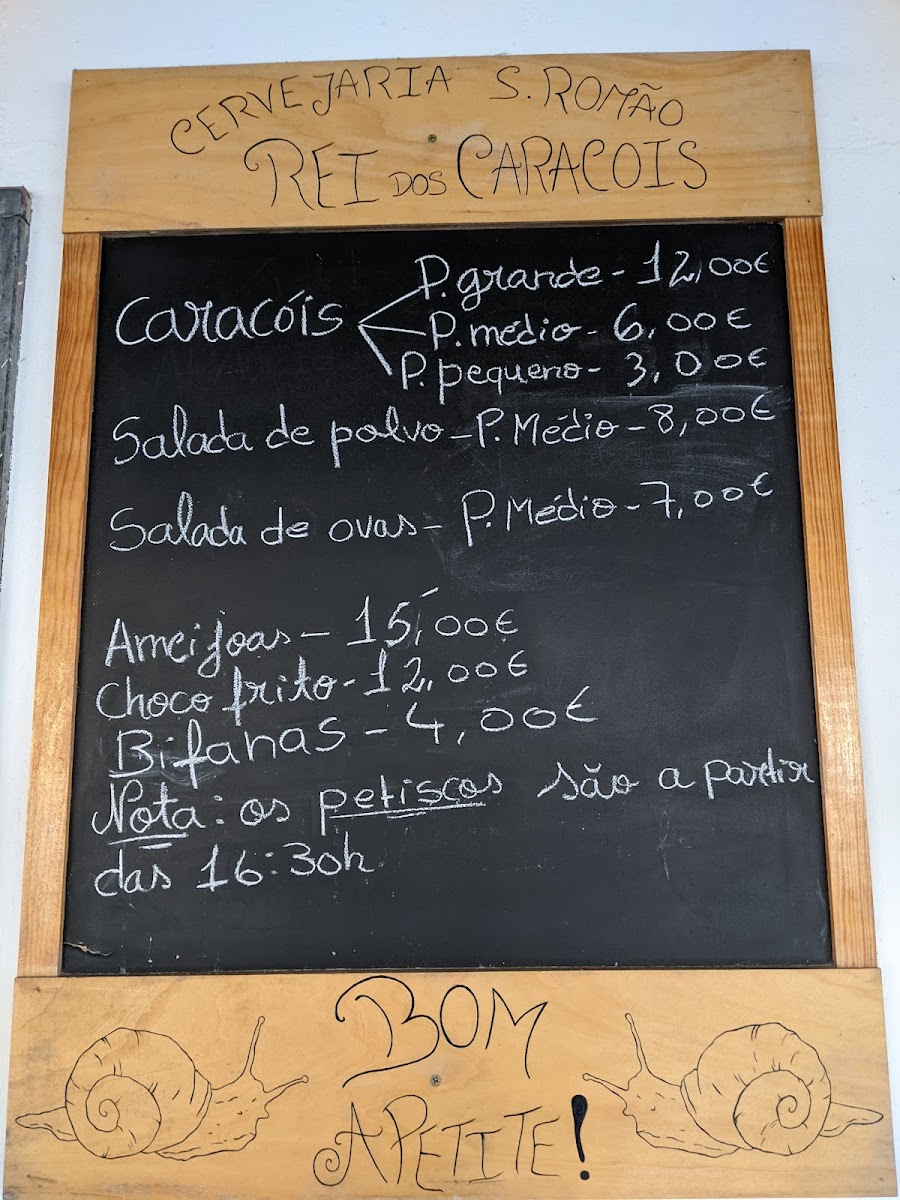 CERVEJARIA S. ROMÃO
REI DOS CARACOIS
Caracóis
P. grande - 12,00€
P. médio - 6,00€
P. pequeno - 3,00€
Salada de polvo - P. Médio - 8,00€
Salada de ovas - P. Médio - 7,00€
Ameijoas - 15,00€
Choco frito - 12,00€
Bifanas - 4,00€
Nota: os petiscos são a partir
das 16:30h
BOM
APETITE!